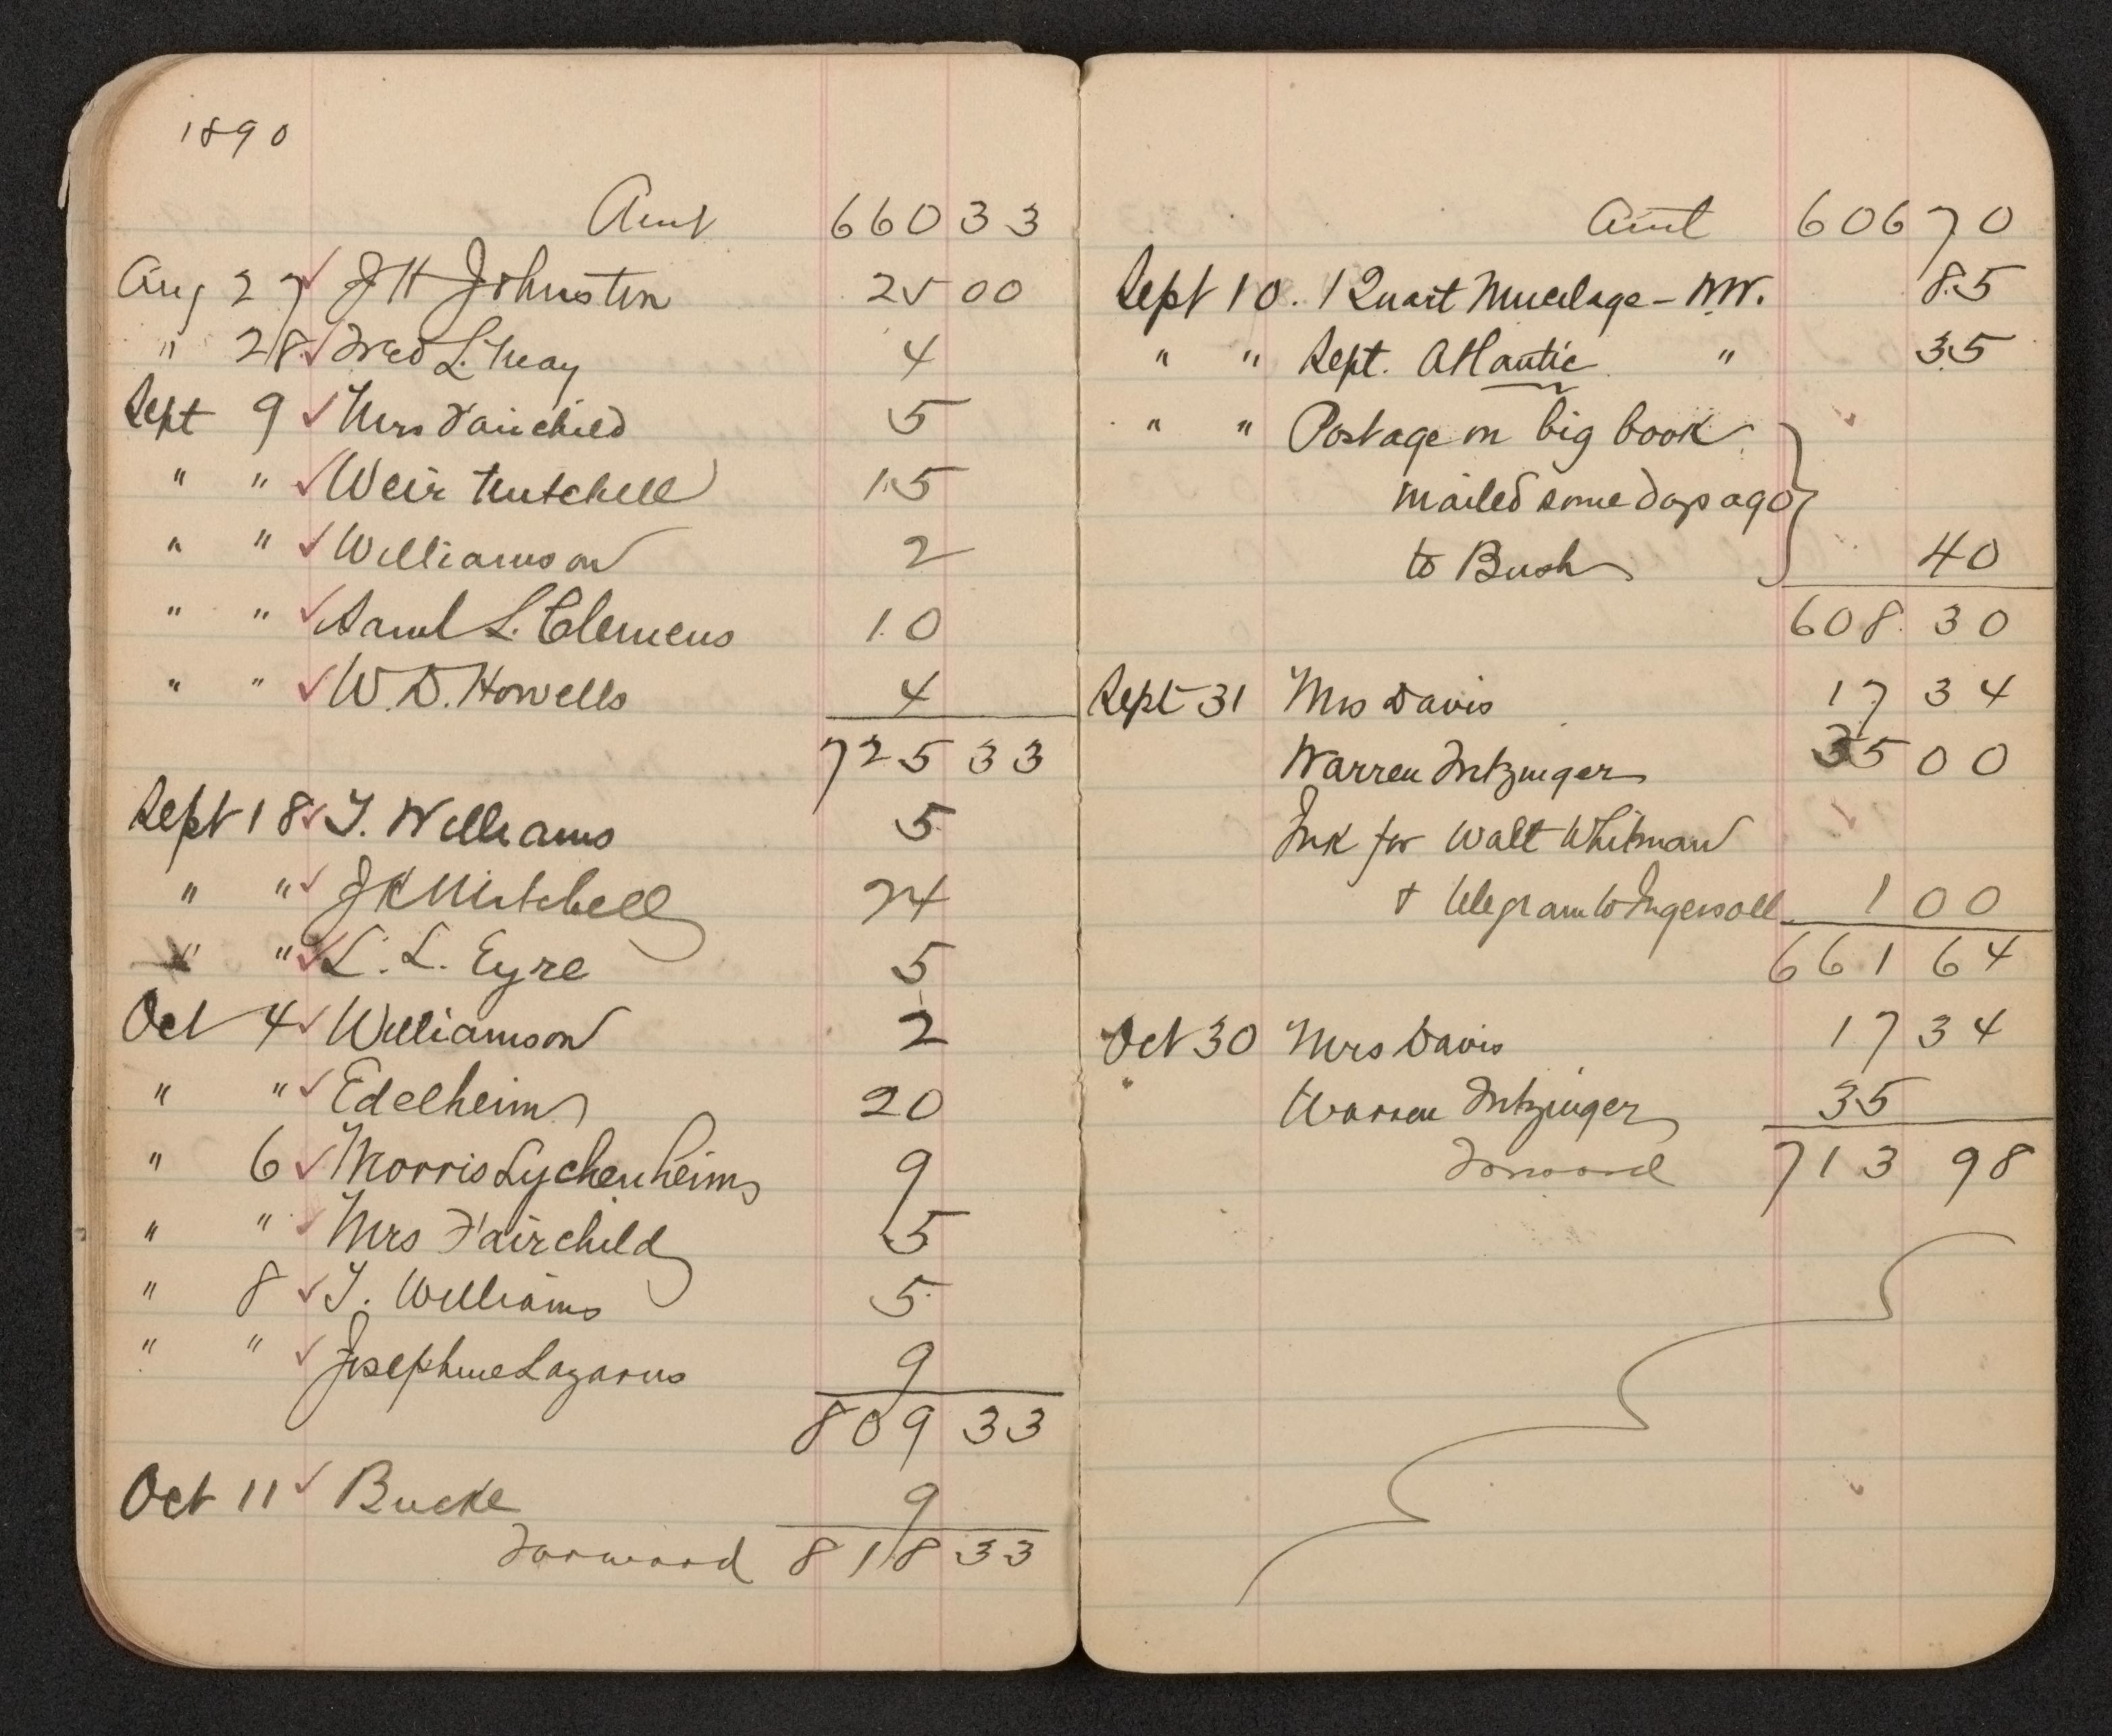 1890
Amt 660 33
Aug 27 ✓ J H Johnston 25 00
" 28 ✓ Fred L. May 4
Sept 9 ✓ Mrs Fairchild 5
" " ✓ Weir Mitchell 15
" " ✓ Williamson 2
" " ✓ Saml L. Clemens 10
" " ✓ W. D. Howells 4
725 33
Sept 18 ✓ T. Williams 5
" " ✓ J K Mitchell 24
" " ✓ L. L. Eyre 5
Oct 4 ✓ Williamson 2
" " ✓ Edelheim 20
" 6 ✓ Morris Lychenheim 9
" " ✓ Mrs Fairchild 5
" 8 ✓ T. Williams 5
" " ✓ Josephine Lazarus 9
809 33
Oct 11 ✓ Bucke 9
Forward 818 33
Amt 606 70
Sept 10. 1 Quart Mucilage - W.W. 85
" " Sept. Atlantic " 35
" " Postage on big book
mailed some days ago
to Bush 40
608 30
Sept 31 Mrs Davis 17 34
Warren Fritzinger 35 00
Ink for Walt Whitman
+ telegram to Ingersoll 1 00
661 64
Oct 30 Mrs Davis 17 34
" Warren Fritzinger 35
Forward 713 98